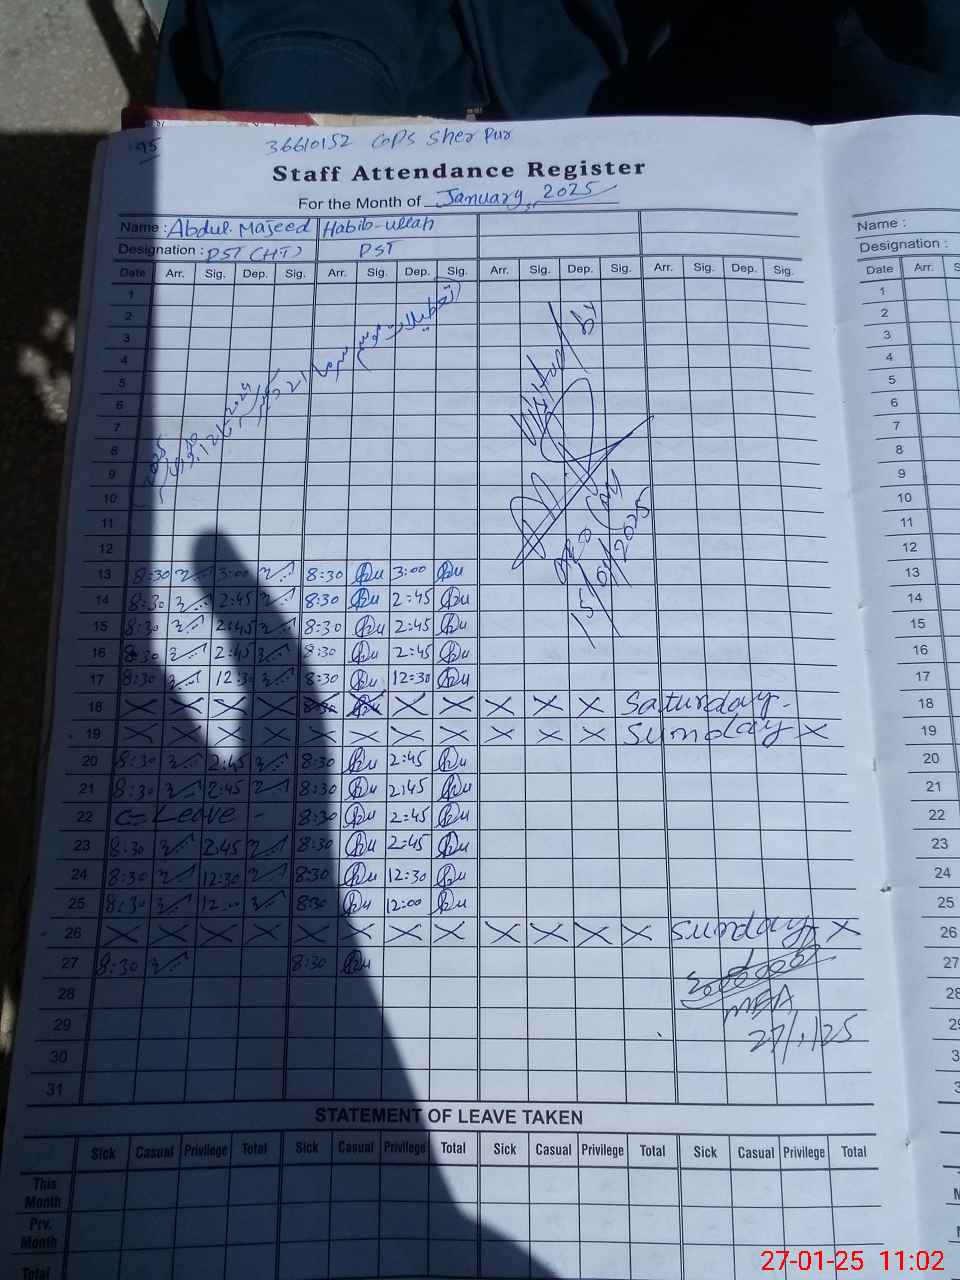 95
36610152 GPS Sher Pur
Staff Attendance Register
For the Month of January, 2025
Name : Abdul Majeed Habib-ullah
Designation : PST (HT) PST
Date Arr. Sig. Dep. Sig. Arr. Sig. Dep. Sig. Arr. Sig. Dep. Sig. Arr. Sig. Dep. Sig.
1
2
3
4
5
6
7
8
9
10
11
12
تعطیلات موسم سرما 21 دسمبر 2024
Visited by
15/01/2025
13 8:30 3:00 8:30 3:00
14 8:30 2:45 8:30 2:45
15 8:30 2:45 8:30 2:45
16 8:30 2:45 8:30 2:45
17 8:30 12:30 8:30 12:30
18 X X X X 8:30 X X X X X X Saturday -
19 X X X X X X X X X X X Sunday X
20 8:30 2:45 8:30 2:45
21 8:30 2:45 8:30 2:45
22 C- Leave - 8:30 2:45
23 8:30 2:45 8:30 2:45
24 8:30 12:30 8:30 12:30
25 8:30 12:00 8:30 12:00
26 X X X X X X X X X X X X Sunday X
27 8:30 8:30
MEA
27/1/25
28
29
30
31
STATEMENT OF LEAVE TAKEN
Sick Casual Privilege Total Sick Casual Privilege Total Sick Casual Privilege Total Sick Casual Privilege Total
This Month
Prv. Month
Total
Name :
Designation :
Date Arr.
1
2
3
4
5
6
7
8
9
10
11
12
13
14
15
16
17
18
19
20
21
22
23
24
25
26
27
28
29
30
27-01-25 11:02